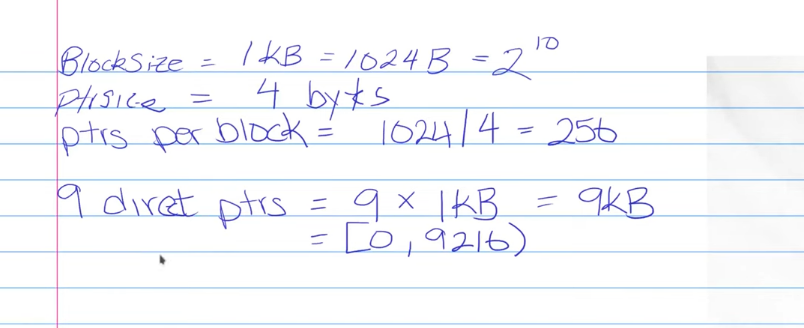 BlockSize = 1KB = 1024B = 2^10
ptrsize = 4 bytes
ptrs per block = 1024/4 = 256
9 direct ptrs = 9 × 1KB = 9KB
= [0, 9216)